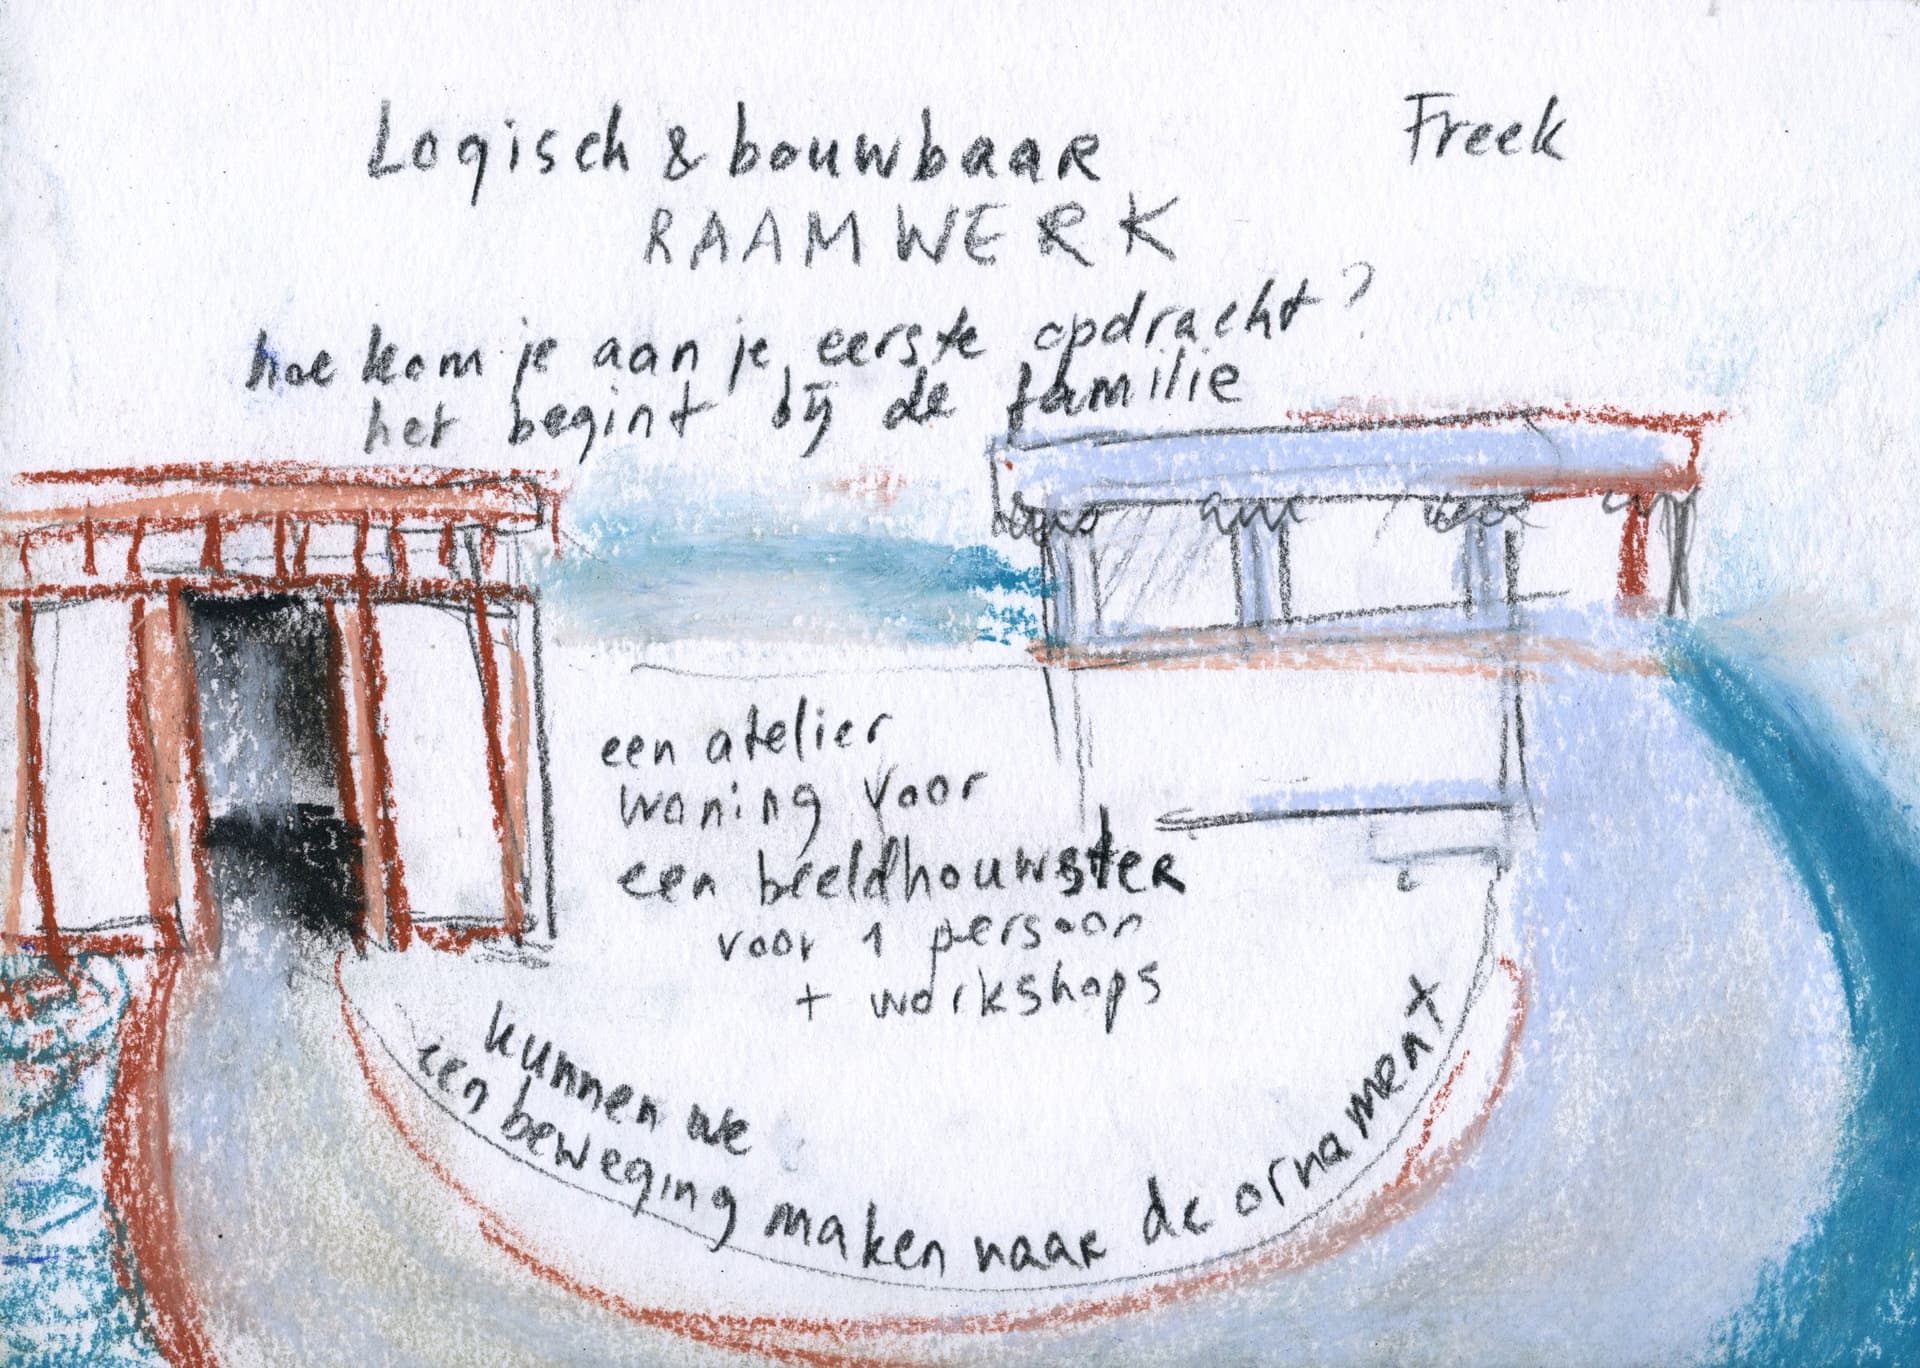 Logisch & bouwbaar
Freek
RAAMWERK
hoe kom je aan je eerste opdracht?
het begint bij de familie
een atelier
woning voor
een beeldhouwster
voor 1 persoon
+ workshops
kunnen we
een beweging maken naar de ornament